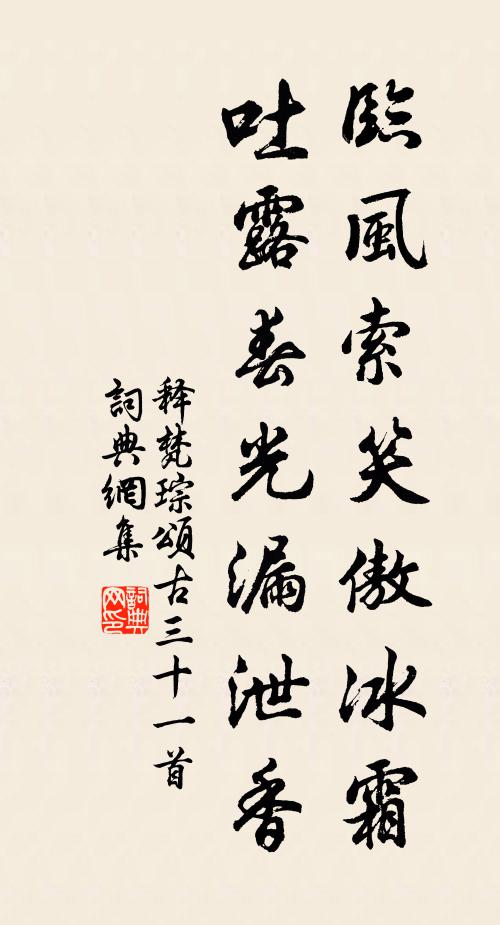 臨風索笑傲冰霜
吐露春光漏泄香
释梵琮頌古三十一首
詞典網集
詞典网印